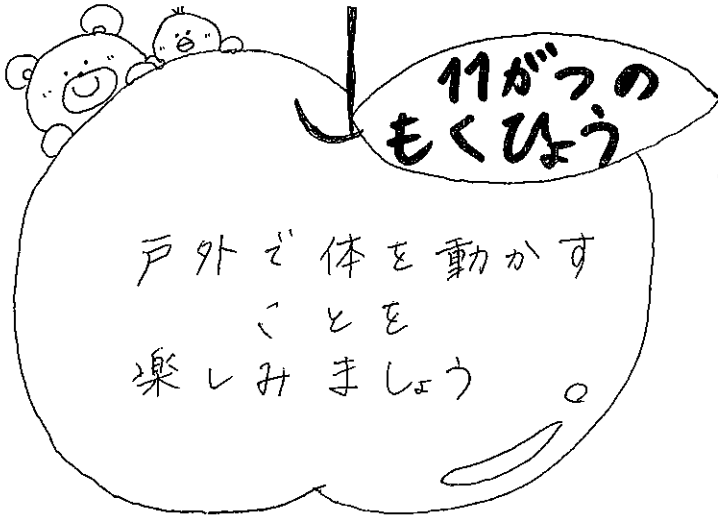 11がつの
もくひょう
戸外で体を動かす
ことを
楽しみましょう